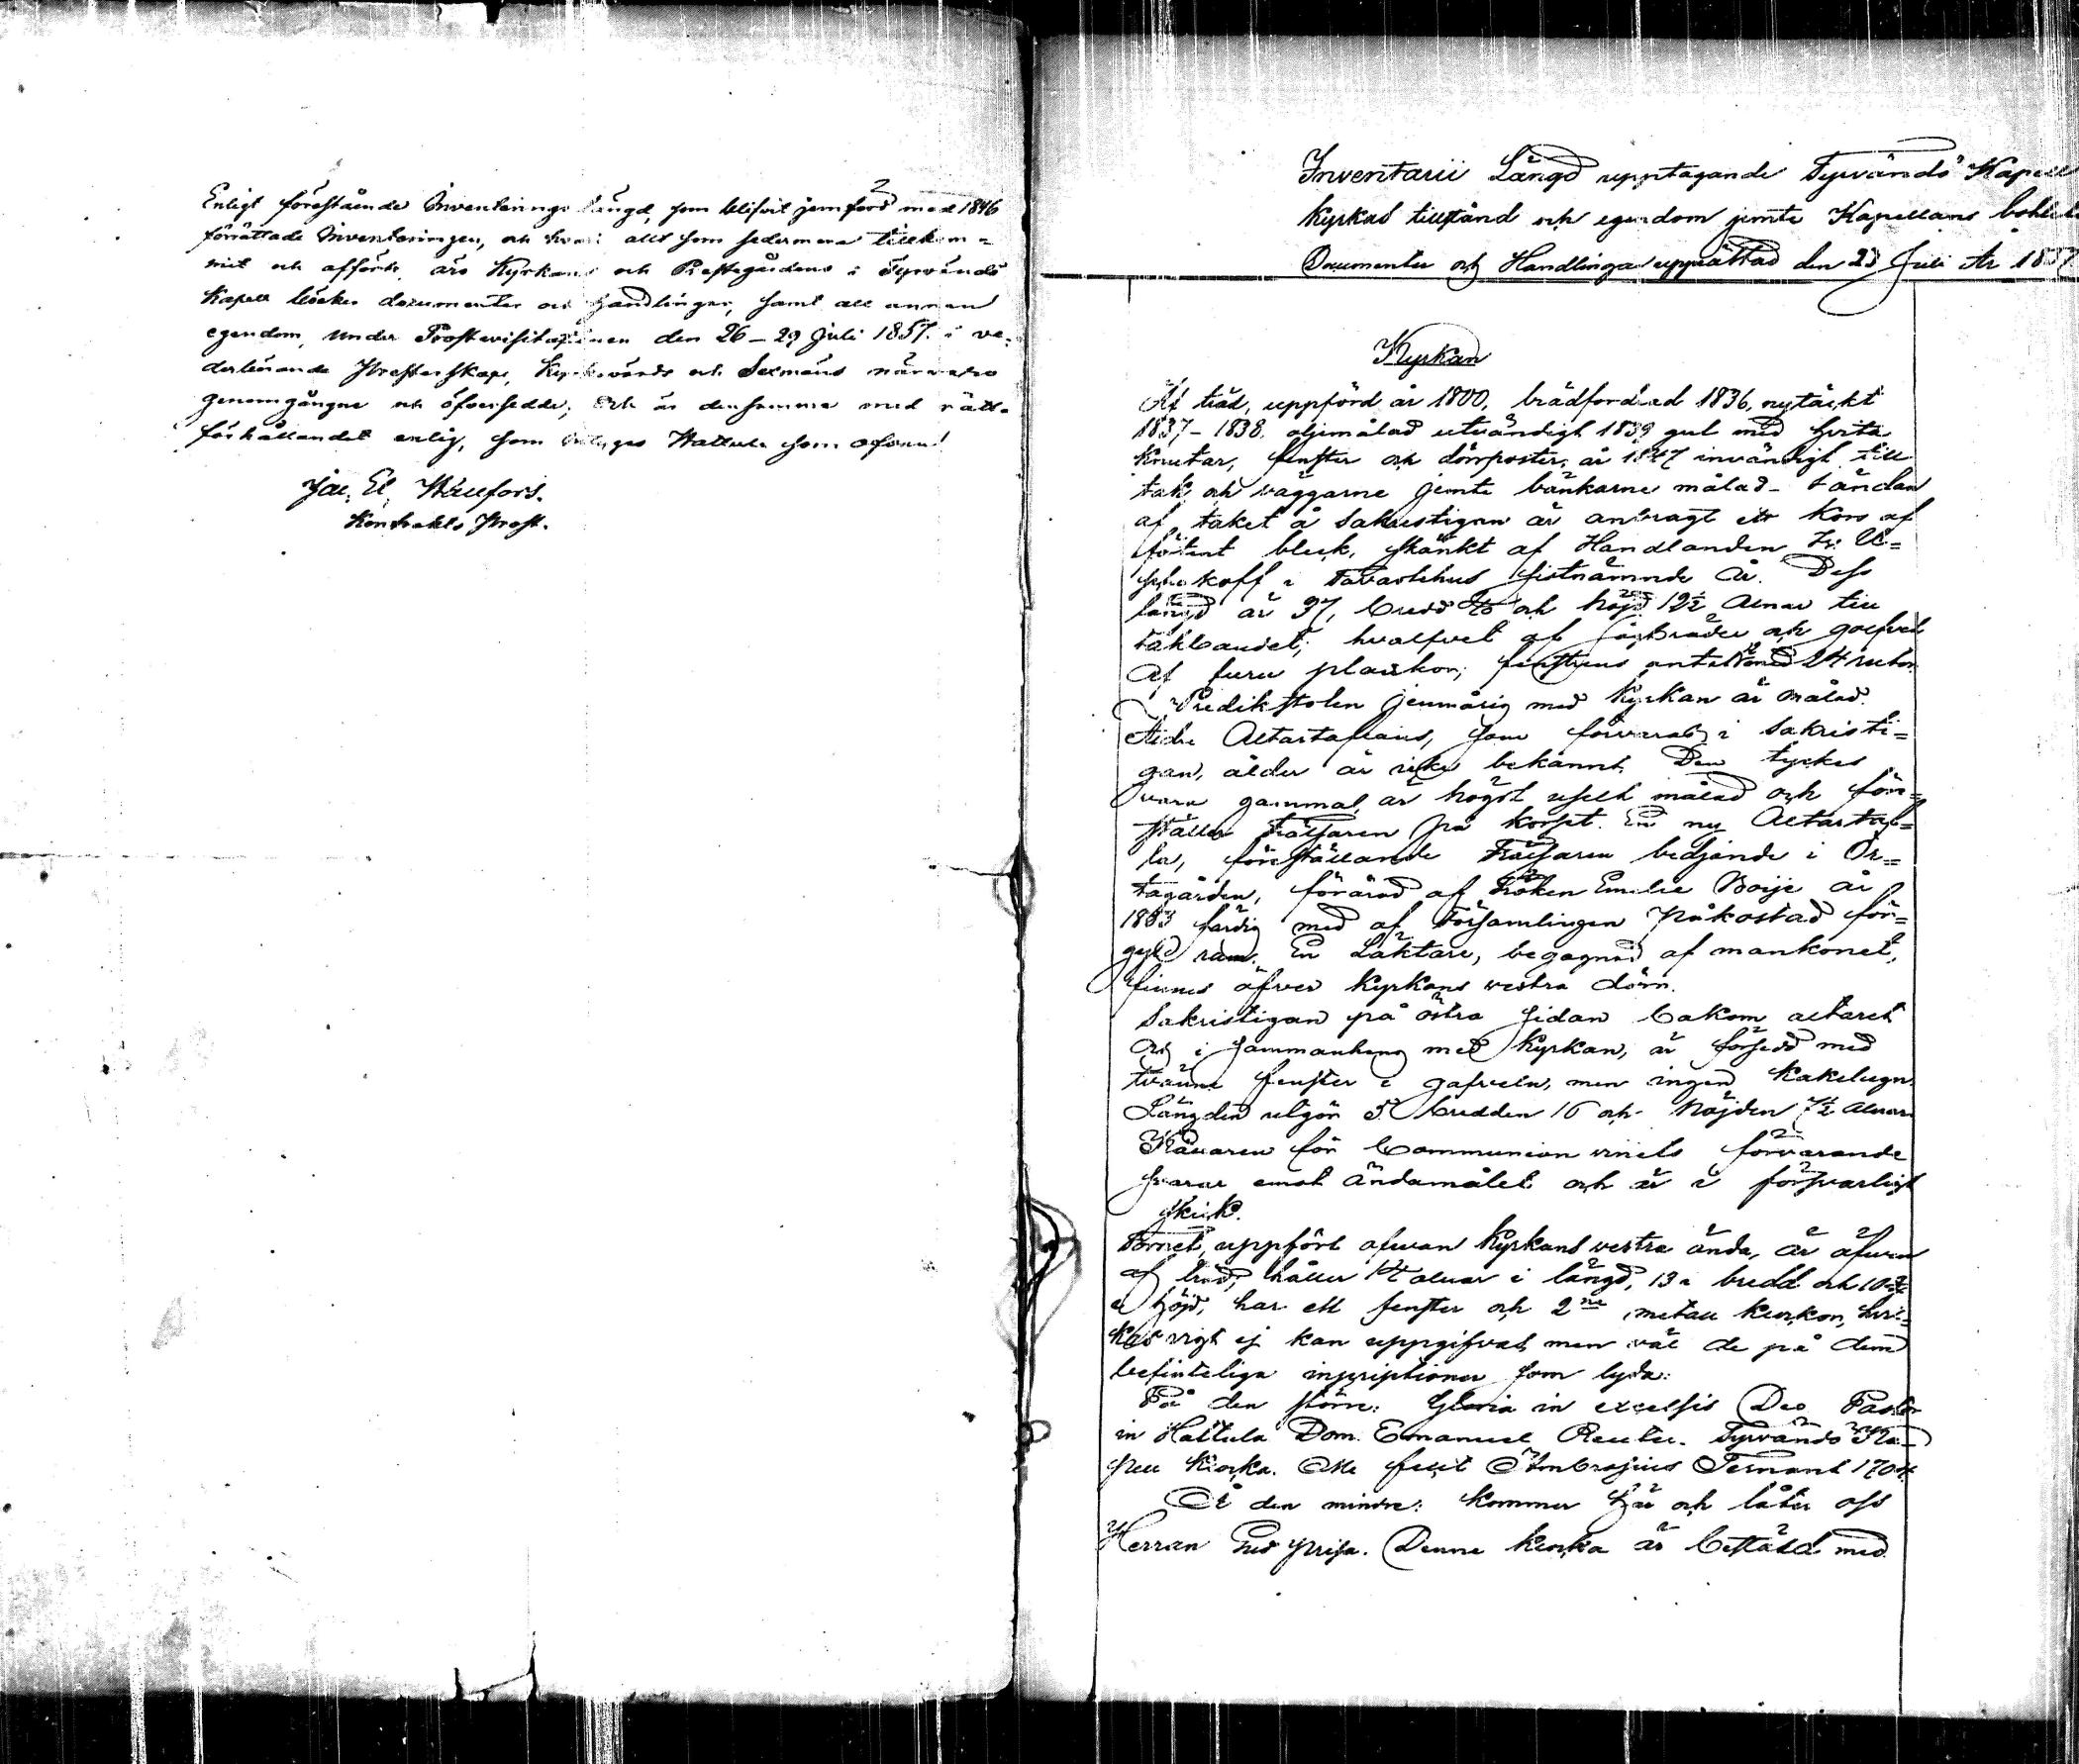 Enligt förestående Inventerings längd, som blifvit jemförd med 1846
förrättade Inventeringen, och hvari allt som sedermera tillkom=
mit och afförts, äro Kyrkans och Prestegårdens i Tyrvändö
Kapell böcker documenter och handlingar, samt all annan
egendom, under Prostevisitationen den 26 - 29 Juli 1857. i ve=
derbörande Presterskaps, Kyrkovärds och Sexmäns närvaro
genomgångne och öfversedde; och är densamma med rätta
förhållandet enlig, som betygas Hattula som ofvan
Jac. El.
Kontrakts Prost.
Inventarii Längd upptagande Tyrvändö Kapell
Kyrkas tillstånd och egendom jemte Kapellans bohle
Documenter och Handlingar upprättad den 28 Juli År 1857
Kyrkan
Af träd, uppförd år 1800, brädfordrad 1836, nytäckt
1837 - 1838. oljemålad utvändigt 1839 gul med hvita
knutar, fenster och dörrposter, år 1847 invändigt till
tak och väggarne jemte bänkarne målad - I ändan
af taket å Sakristigan är anbragt ett Kors af
förtent bleck, skänkt af Handlanden
koff i Tavastehus sistnämnde år. Dess
längd är 37, bredd och höjd 12½ Alnar till
takbandet; hvalfvet af sågbräder och golfvet
af furu plankor; fenstrens antal med 24 rutor.
Predikstolen jemnårig med Kyrkan är målad.
Äldre Altartaflans, som förvaras i Sakristi=
gan, ålder är icke bekannt. Den tyckes
vara gammal, är högst uselt målad och före=
ställer Frälsaren på korset. En ny Altartaf=
la, föreställande Frälsaren bedjande i Ör=
tagården, förärad af Fröken Emelie Boije år
1853 färdig med af Församlingen påkostad för=
gyld ram. En Läktare, begagnad af mankönet,
finnes öfver Kyrkans vestra dörr.
Sakristigan på östra sidan bakom altaret
och i sammanhang med Kyrkan, är försedd med
tvänne fenster i gafveln, men ingen kakelugn.
Längden utgör bredden 16 och höjden 7½ Alnar
Källaren för Communion vinets förvarande
svarar emot ändamålet och är i försvarligt
skick.
Tornet, uppfört ofvan Kyrkans vestra ända, är äfven
af träd, håller 14 alnar i längd, 13 i bredd och
i höjd, har ett fenster och 2ne metall klockor, hvil=
kas vigt ej kan uppgifvas, men väl de på dem
befinteliga inscriptioner som lyda:
På den större: Gloria in excelsis Deo Pastor
in Hattula Dom. Emanuel Reuter. Tyrvändö Ka=
pell Klocka. Me fecit Ambrosius Fernant 1704.
På den mindre: Kommer här och låter oss
Herran Gud prisa. Denne klocka är beställd med